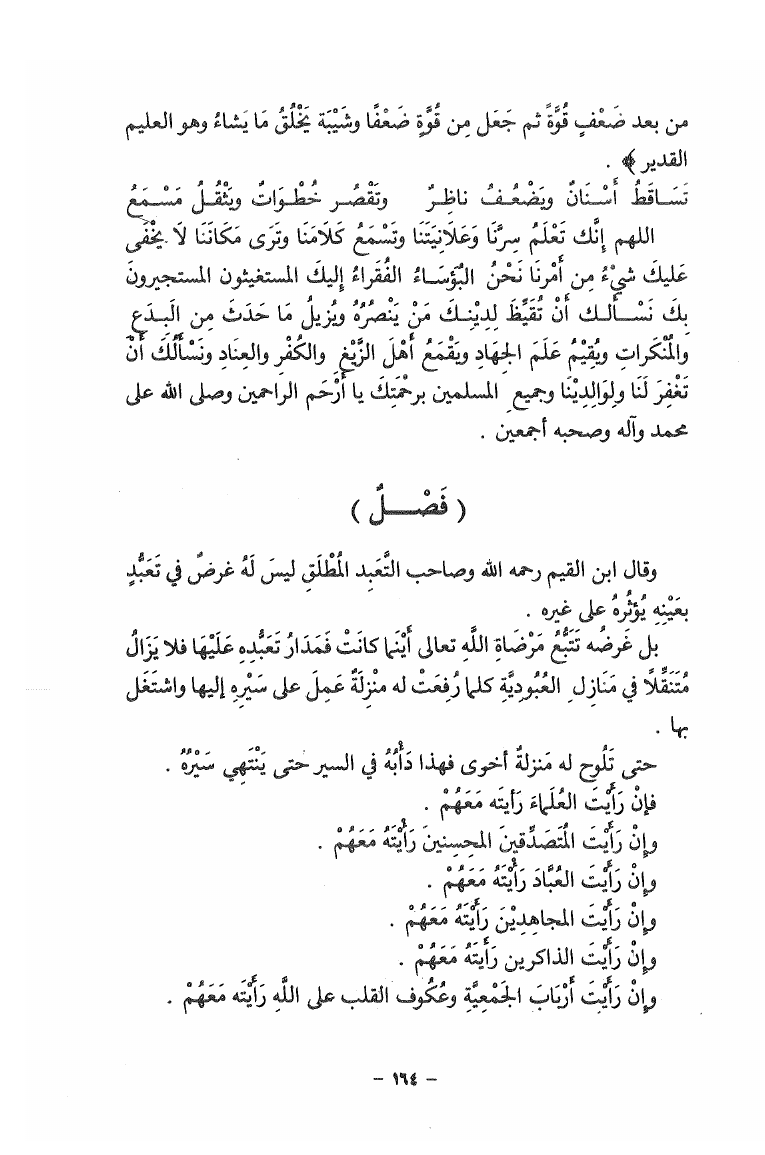 من بعد ضَعْفٍ قُوَّةً ثم جَعَل مِن قُوَّةٍ ضَعْفًا وشَيْبَة يَخْلُقُ مَا يَشاءُ وهو العليم
القدير ﴾ .
تَسَاقَطُ أَسْنَانٌ ويَضْعُفُ ناظِرٌ وتَقْصُر خُطْوَاتٌ ويَثْقُلُ مَسْمَعُ
اللهم إِنَّك تَعْلَمُ سِرَّنَا وَعَلَانِيَتَنَا وتَسْمَعُ كَلَامَنَا وتَرَى مَكَانَنَا لَا يَخْفَى
عَليكَ شيْءٌ مِن أَمْرِنَا نَحْنُ البُؤَسَاءُ الفُقَراءُ إِليكَ المستغيثون المستجيرونَ
بِكَ نَسْأَلك أَنْ تُقَيِّظَ لِدِيْنِكَ مَنْ يَنْصُرُهُ ويُزِيلُ مَا حَدَثَ مِن الَبِدَعِ
والمُنْكَراتِ ويُقِيْمُ عَلَمَ الجِهَادِ ويَقْمَعُ أَهْلَ الزَّيْغِ والكُفْرِ والعِنَادِ ونَسْأَلُكَ أَنْ
تَغْفِرَ لَنَا ولِوَالِدِيْنَا وجميع المسلمين برحْمَتِكَ يا أَرْحَم الراحمين وصلى الله على
محمد وآله وصحبه أجمعين .
( فَصْلٌ )
وقال ابن القيم رحمه الله وصاحب التَّعَبد المُطْلَقِ ليسَ لَهُ غرضٌ في تَعَبُّدٍ
بعَيْنِهِ يُؤثُرهُ على غيره .
بل غَرضُه تَتَبُّعُ مَرْضَاةِ اللَّهِ تعالى أَيْنَما كانَتْ فَمَدَارُ تَعَبُّدِه عَلَيْهَا فلا يَزَالُ
مُتَنَقِّلًا في مَنَازِلِ العُبُودِيَّةِ كلما رُفِعَتْ له منْزِلَةٌ عَمِلَ على سَيْرِهِ إليها واشتَغَل
بها .
حتى تَلُوح له مَنزلةٌ أخوى فهذا دَأْبُهُ في السير حتى يَنْتَهِي سَيْرُهُ .
فإنْ رَأَيْتَ العُلَماءَ رَأيتَه مَعَهُمْ .
وإنْ رَأَيْتَ المُتَصَدِّقينَ المحسِنينَ رَأَيْتَهُ مَعَهُمْ .
وإنْ رَأَيْتَ العُبَّادَ رَأَيْتَهُ مَعَهُمْ .
وإنْ رَأَيْتَ المجاهِدِيْنَ رَأَيْتَهُ مَعَهُمْ .
وإنْ رَأَيْتَ الذاكرين رَأَيتَهُ مَعَهُمْ .
وإنْ رَأَيْتَ أَرْبَابَ الجَمْعِيَّةِ وعُكُوف القلب على اللَّهِ رَأَيْتَه مَعَهُمْ .
- ١٦٤ -